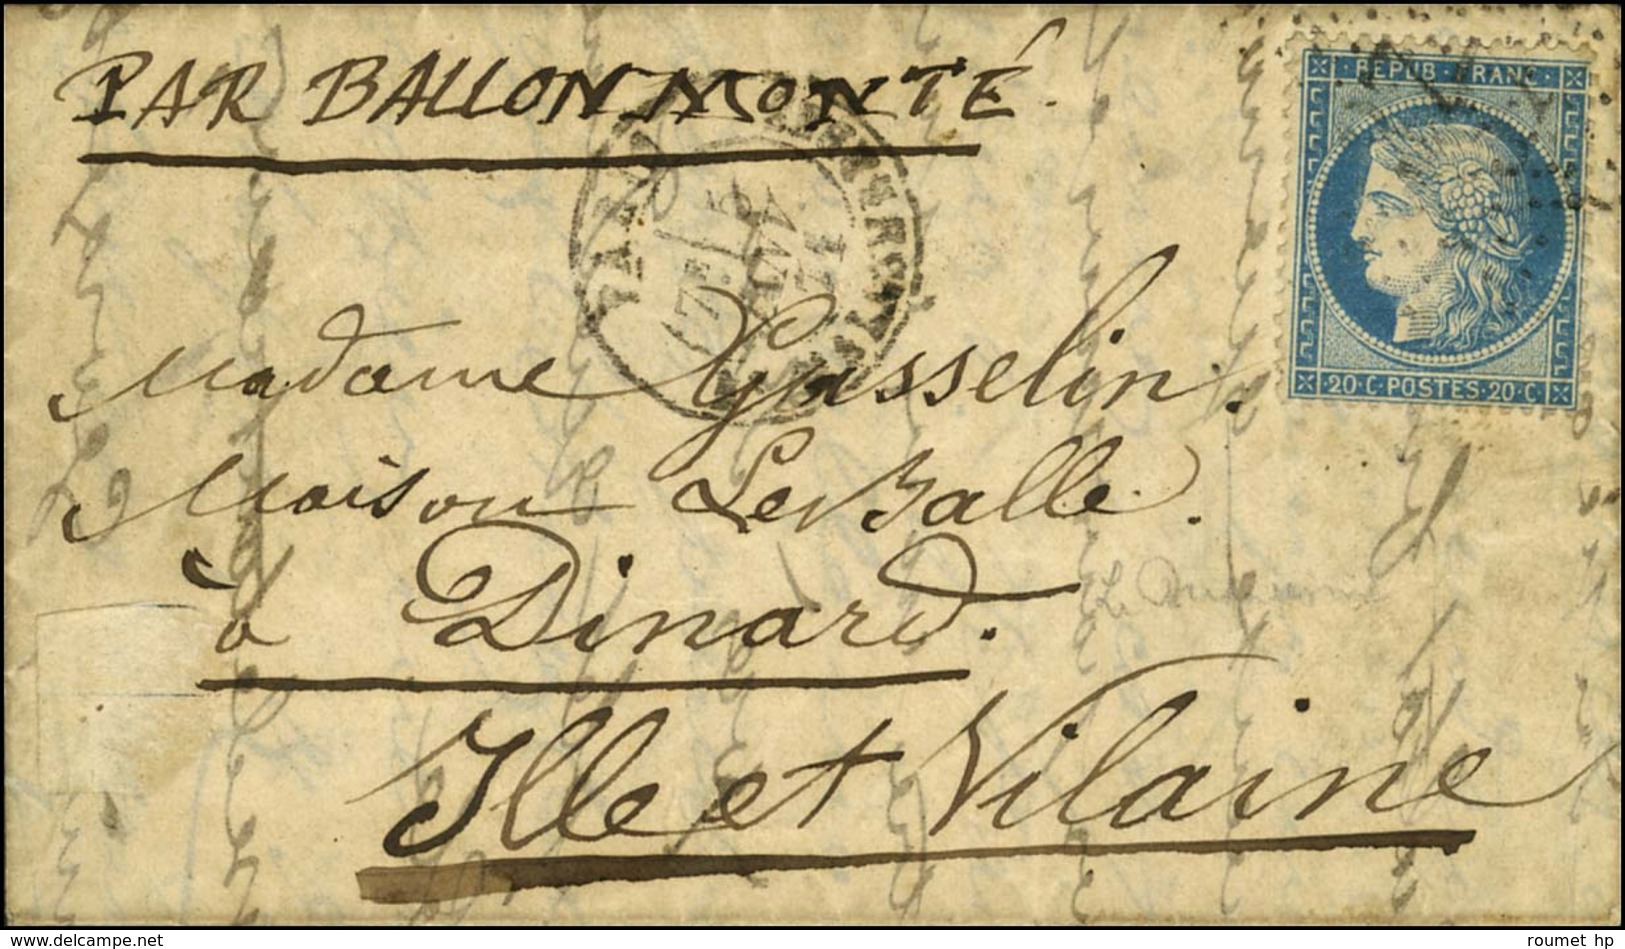 PAR BALLON MONTÉ.
REPUB. FRANC.
20·C·POSTES·20·C
PARIS
Madame Gasselin.
Maison LeBalle.
à Dinard.
Ille et Vilaine
roumet hp